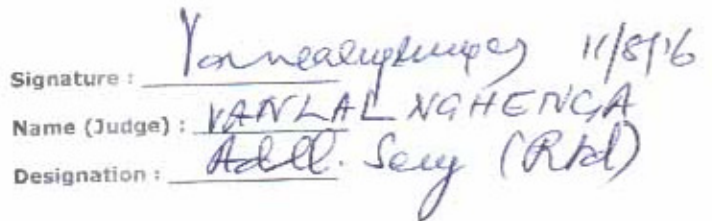 Signature : 11/8/16
Name (Judge) : VANLAL NGHENGA
Designation : Addl. Secy (Rtd)